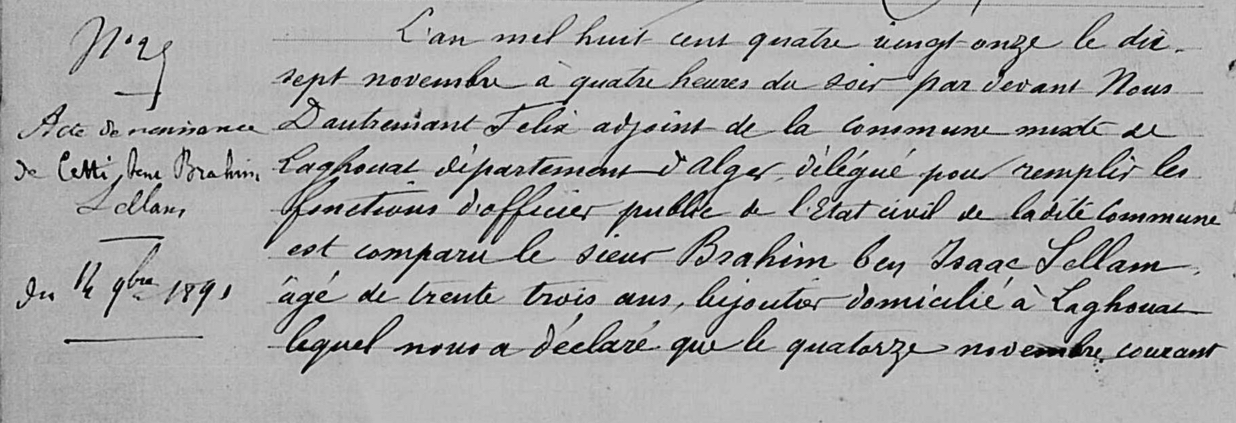 N° 25
Acte de naissance
de Cetti bent Brahim
Sellam
du 14 9bre 1891
L'an mil huit cent quatre vingt onze le dix-
sept novembre à quatre heures du soir par devant Nous
Dautremant Felix adjoint de la commune mixte de
Laghouat département d'Alger, délégué pour remplir les
fonctions d'officier public de l'Etat civil de ladite Commune
est comparu le sieur Brahim ben Isaac Sellam,
âgé de trente trois ans, bijoutier domicilié à Laghouat
lequel nous a déclaré que le quatorze novembre courant